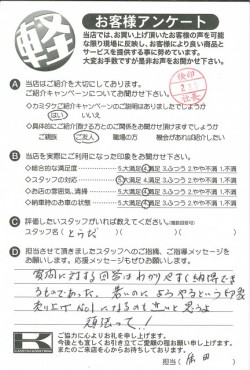 軽
お客様アンケート
当店では、お買い上げ頂いたお客様の声を可能
な限り現場に反映し、お客様により良い商品と
サービスを提供する事に努めています。
大変お手数ですが是非お声をお聞かせ下さい。
A 当店はご紹介を大切にしております。
ご紹介キャンペーンについてお聞かせ下さい。
◇カミタケご紹介キャンペーンのご説明はありましたでしょうか
はい いいえ
◇具体的にご紹介頂ける方とのご関係をお聞かせ頂けますでしょうか
ご親族 ご友人 職場の方 機会があれば紹介したい
B 当店を実際にご利用になった印象をお聞かせ下さい。
◇総合的な満足度 5.大満足 4.満足 3.ふつう 2.やや不満 1.不満
◇スタッフの対応 5.大満足 4.満足 3.ふつう 2.やや不満 1.不満
◇お店の雰囲気、清掃 5.大満足 4.満足 3.ふつう 2.やや不満 1.不満
◇納車時のお車の状態 5.大満足 4.満足 3.ふつう 2.やや不満 1.不満
C 評価したいスタッフがいれば教えてください。
スタッフ名(
D 担当させて頂きましたスタッフへのご指摘、ご指導メッセージを
お願いします。応援メッセージもぜひお願いします。
質問に対する回答はわかりやすく納得でき
るものであった。若いのによくやるという印象
売り上げNo1になるのも近いと思うよ
頑張って!
ご協力に心よりお礼を申し上げます。
今後とも宜しくお引き立てご愛顧の程お願い申し上げます。
またのご来店を心からお待ちしております。
担当(